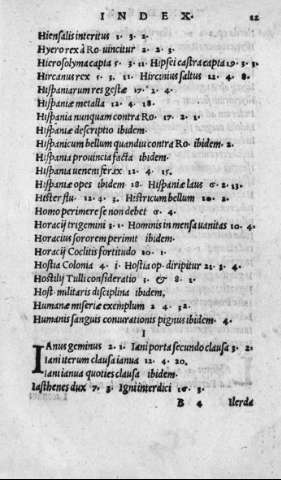 INDEX. 12
Hiensalis interitus 3. 3. 2.
Hyero rex à Ro. uincitur 2. 2. 3.
Hierosolyma capta 5. 3. 11. Hipsei castra capta 3. 3. 19.
Hircanus rex 3. 5. 11. Hircinius saltus 12. 4. 8.
Hispaniarum res gestæ 17. 2. 4.
Hispaniæ metalla 12. 4. 18.
Hispania nunquam contra Ro. 17. 2. 1.
Hispaniæ descriptio ibidem.
Hispanicum bellum quandiu contra Ro. ibidem. 2.
Hispania prouincia facta ibidem.
Hispania ueneni ferax 12. 4. 15.
Hispaniæ opes ibidem 18. Hispaniæ laus 6. 2. 13.
Hister flu. 12. 4. 3. Histricum bellum 10. 2.
Homo perimere se non debet 6. 4.
Horatij trigemini 3. 1. Homonis in mensa uanitas 10. 4.
Horatius sororem perimit ibidem.
Horatij Coclitis fortitudo 10. 1.
Hostia Colonia 4. 1. Hostia op. diripitur 21. 3. 4.
Hostilij Tulli consideratio 3. & 8. 1.
Host. militaris disciplina ibidem.
Humanæ miseriæ exemplum 2. 4. 32.
Humanis sanguis coniurationis pignus ibidem. 4.
I
IAnus geminus 2. 1. Iani porta secundo clausa 3. 2.
Iani iterum clausa ianua 12. 4. 20.
Iani ianua quoties clausa ibidem.
Iasthenes dux 7. 3. Igni interdici 16. 3.
B 4 Ilerda